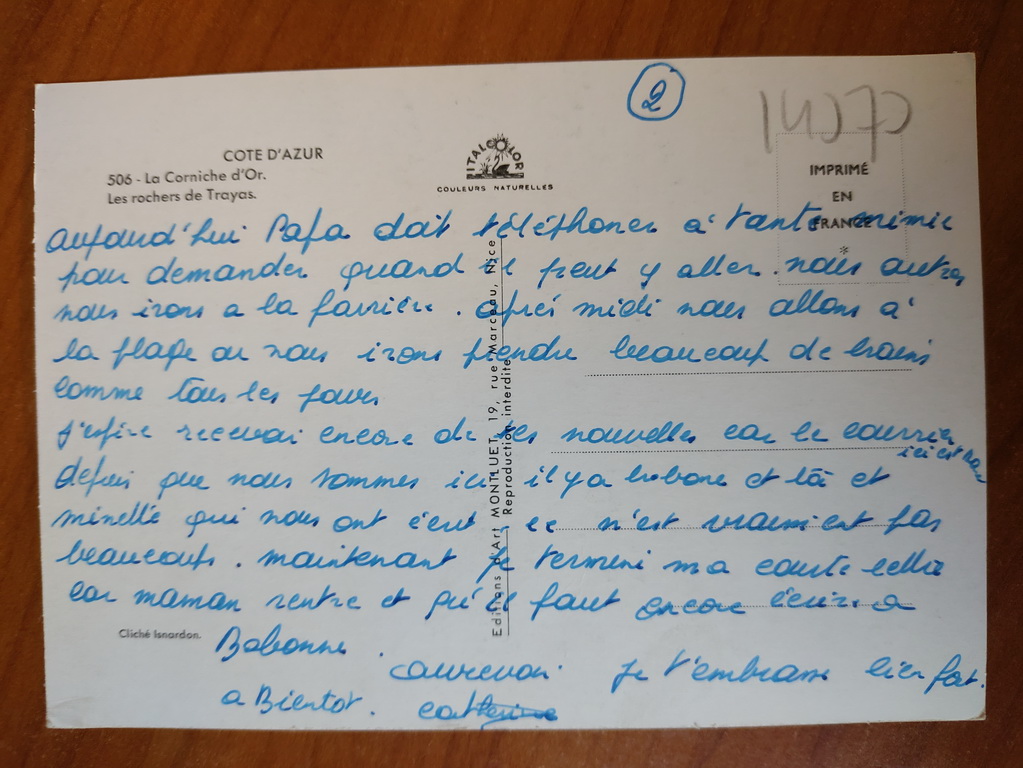 2
14070
COTE D'AZUR
506 - La Corniche d'Or.
Les rochers de Trayas.
ITALCOLOR
COULEURS NATURELLES
IMPRIMÉ
EN
FRANCE
*
Editions d'Art MONTLUET, 19, rue Marceau, Nice
Reproduction interdite
aujourd'hui Papa doit téléphoner a' tante mimie
pour demander quand il peut y aller. nous autres
nous irons a la . après midi nous allons a'
la plage ou nous irons prendre beaucoup de bains
comme tous les jours
j'espère recevoir encore de tes nouvelles car le courrier
ici est
depuis que nous sommes ici il y a et et
minelle qui nous ont écrit ce n'est vraiment pas
beaucoup. maintenant je termine ma carte
car maman rentre et qu'il faut encore écrire a
Babonne.
aurevoir je t'embrasse bien fort.
a Bientot. catherine
Cliché Isnardon.